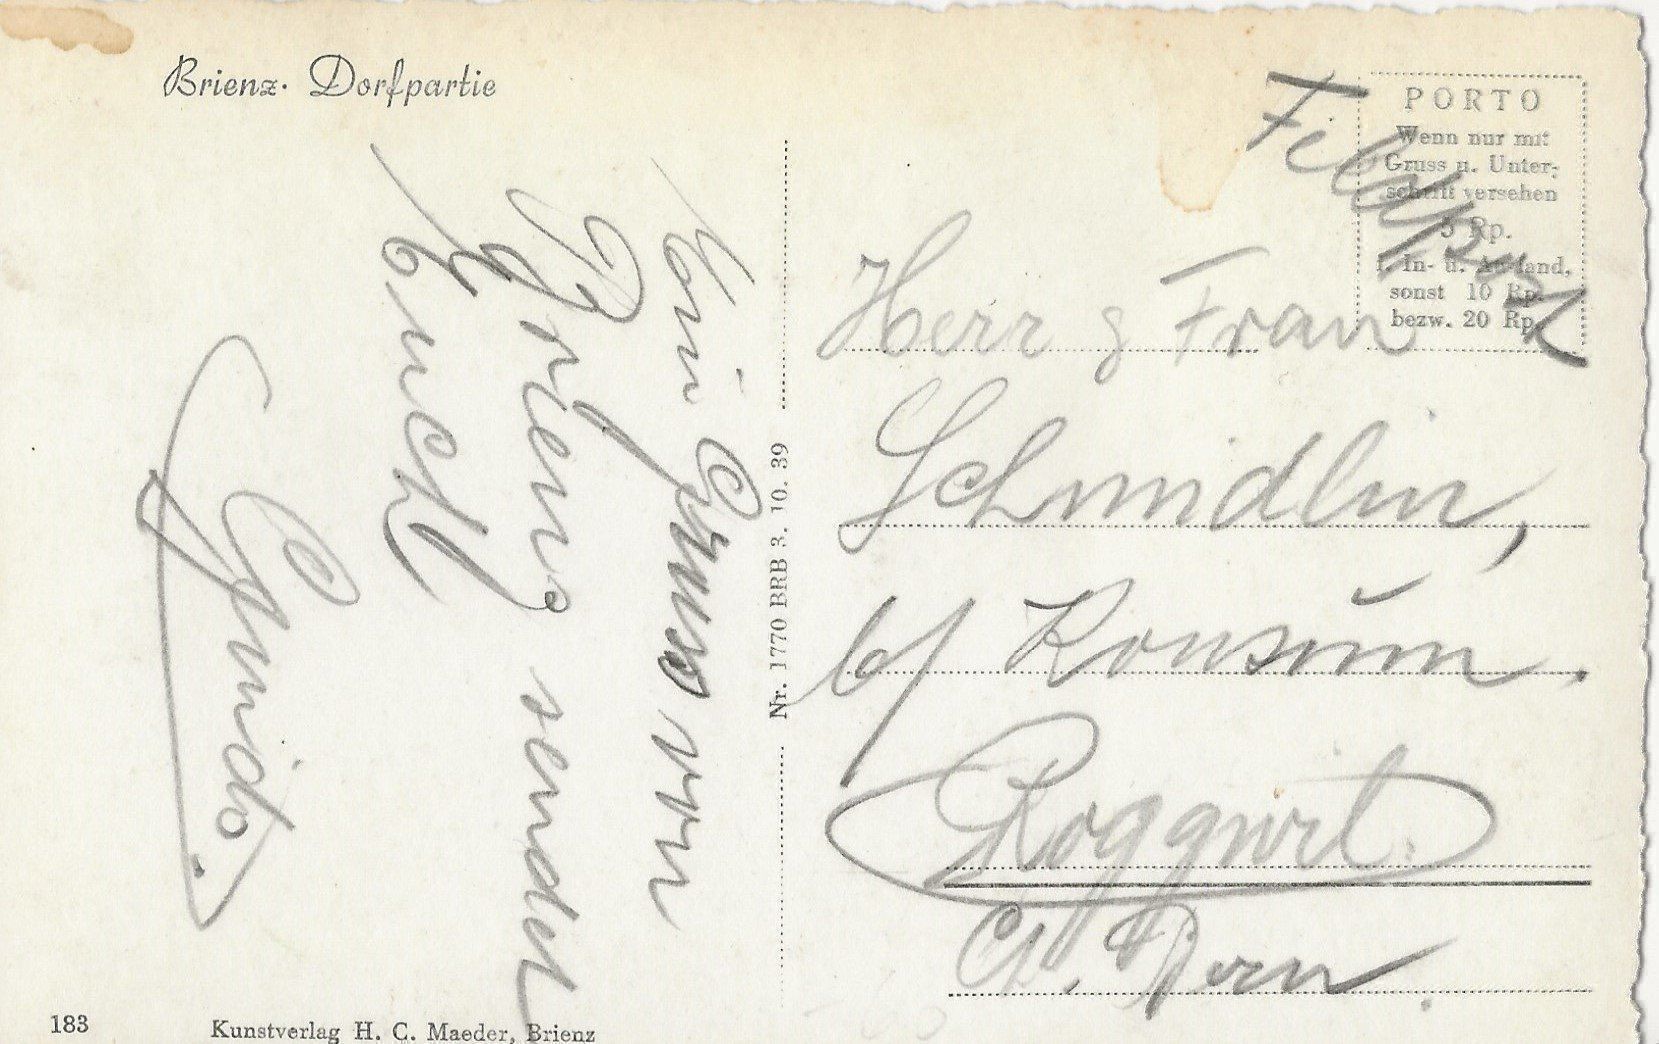 Brienz. Dorfpartie
Ein Gruss von
Brienz sendet
Euch
Guido.
Nr. 1770 BRB 3. 10. 39
PORTO
Wenn nur mit
Gruss u. Unter-
schrift versehen
5 Rp.
f. In- u. Ausland,
sonst 10 Rp.
bezw. 20 Rp.
Feldpost
Herr & Frau
Schmidlin,
b/ Konsum.
Roggwil.
Ct. Bern.
183
Kunstverlag H. C. Maeder, Brienz